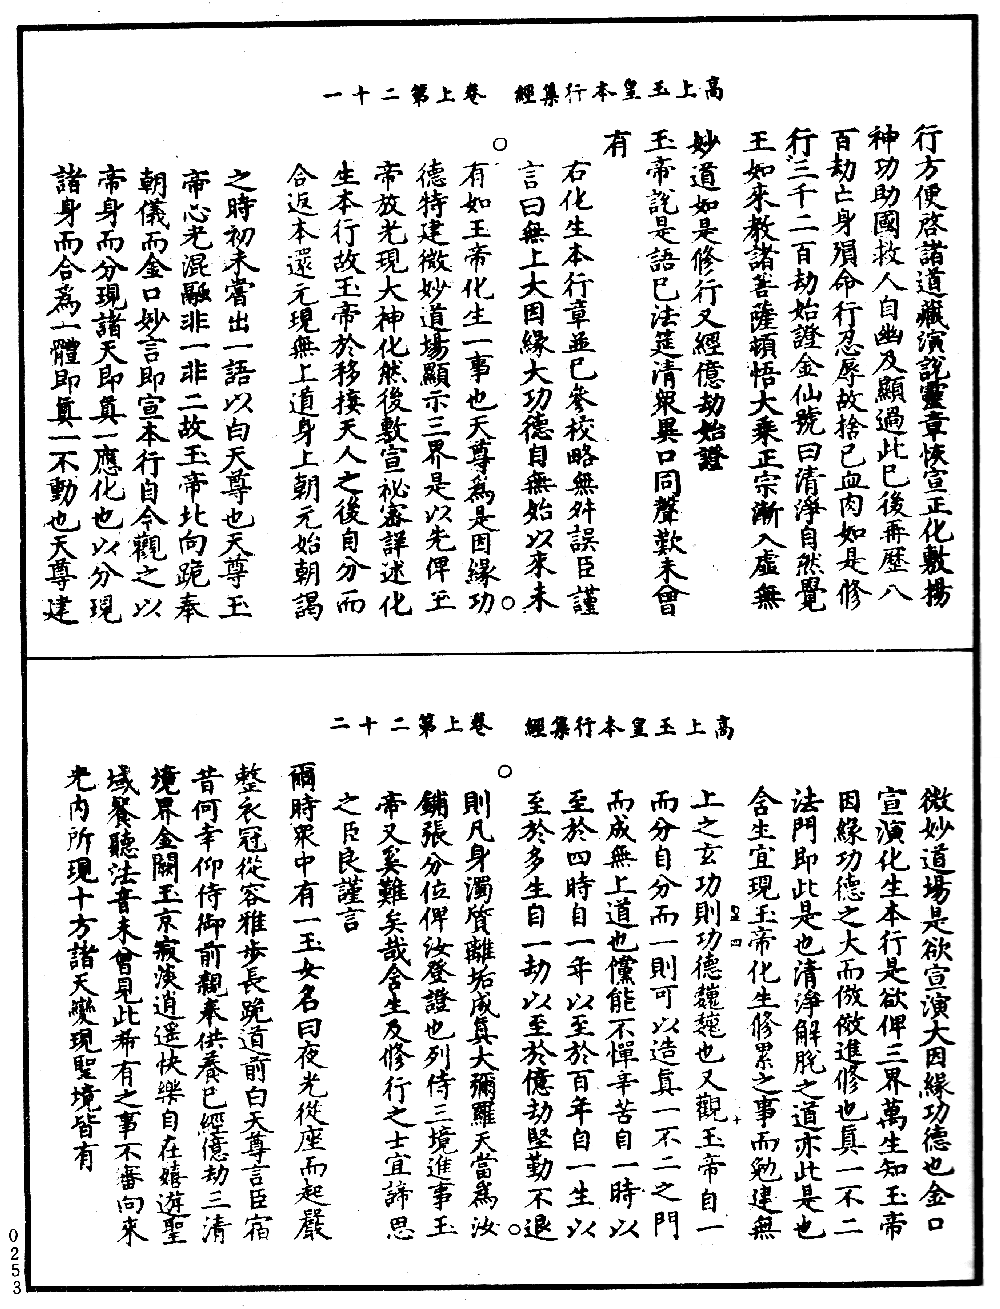 高上玉皇本行集經　卷上第二十一
行方便啓諸道藏演說靈章恢宣正化敷揚
神功助國救人自幽及顯過此已後再歷八
百劫亡身殞命行忍辱故捨己血肉如是修
行三千二百劫始證金仙號曰清淨自然覺
王如來教諸菩薩頓悟大乘正宗漸入虛無
妙道如是修行又經億劫始證
玉帝說是語已法筵清衆異口同聲歎未曾
有
右化生本行章並已參校略無舛誤臣謹
言曰無上大因緣大功德自無始以來未
有如玉帝化生一事也天尊爲是因緣功
德特建微妙道場顯示三界是以先俾玉
帝放光現大神化然後敷宣祕審詳述化
生本行故玉帝於移接天人之後自分而
合返本還元現無上道身上朝元始朝謁
之時初未嘗出一語以白天尊也天尊玉
帝心光混融非一非二故玉帝北向跪奉
朝儀而金口妙言即宣本行自今觀之以
帝身而分現諸天即眞一應化也以分現
諸身而合爲一體即眞一不動也天尊建
高上玉皇本行集經　卷上第二十二
微妙道場是欲宣演大因緣功德也金口
宣演化生本行是欲俾三界萬生知玉帝
因緣功德之大而倣傚進修也眞一不二
法門即此是也清淨解脫之道亦此是也
含生宜現玉帝化生修累之事而勉建無
上之玄功則功德巍巍也又觀玉帝自一
而分自分而一則可以造眞一不二之門
而成無上道也儻能不憚辛苦自一時以
至於四時自一年以至於百年自一生以
至於多生自一劫以至於億劫堅勤不退
則凡身濁質離垢成眞大彌羅天當爲汝
鋪張分位俾汝登證也列侍三境進事玉
帝又奚難矣哉含生及修行之士宜諦思
之臣良謹言
爾時衆中有一玉女名曰夜光從座而起嚴
整衣冠從容雅步長跪道前白天尊言臣宿
昔何幸仰侍御前觀奉供養已經億劫三清
境界金闕玉京寂淡逍遥快樂自在嬉遊聖
域餐聽法音未曾見此希有之事不審向來
光内所現十方諸天變現聖境皆有
0253